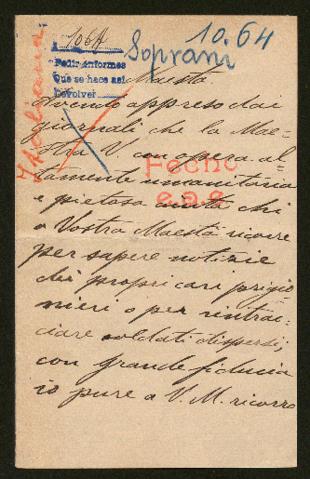 106A
10.64
Soprani
Italiana
Pedir informes
Que se hace asi
Devolver
Maestà
Avendo appreso dai
giornali che la Mae=
stà V. con opera al=
tamente umanitaria
e pietosa aiuta chi
a Vostra Maestà ricorre
per sapere notizie
dei propri cari prigio
nieri o per rintrac=
ciare soldati dispersi;
con grande fiducia
io pure a V. M. ricorro
Fecho